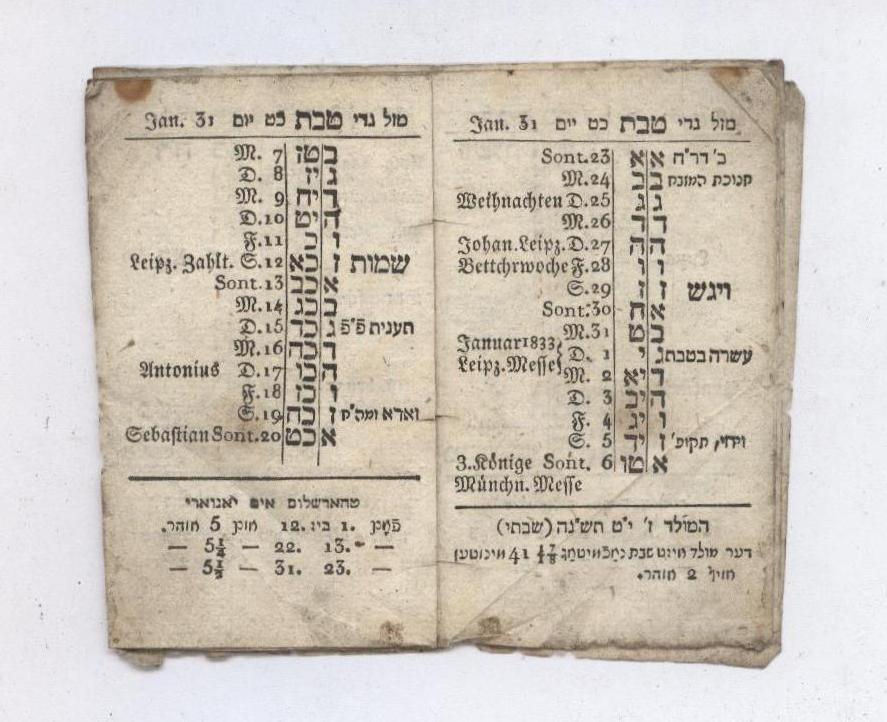 מזל גדי טבת כט יום Jan. 31
ב' דר"ח א א Sont. 23
חנוכת המזבח ב ב M. 24
ג ג Weihnachten D. 25
ד ד M. 26
ה ה Johan. Leipz. D. 27
ו ו Bettchrwoche F. 28
ויגש ז ז S. 29
א ח Sont. 30
ב ט M. 31
Januar 1833
עשרה בטבת ג י D. 1
Leipz. Messe
ד יא M. 2
ה יב D. 3
ו יג F. 4
ויחי, תקופ' ז יד S. 5
א טו 3. Könige Sont. 6
Münchn. Messe
המולד ז' י"ט תש"נה (שבתי)
דער מולד איזט שבת נאכמיטטאג 41 מינוטען
אויף 2 אוהר.
מזל גדי טבת כט יום Jan. 31
ב טז M. 7
ג יז D. 8
ד יח M. 9
ה יט D. 10
ו כ F. 11
שמות ז כא Leipz. Zahlt. S. 12
א כב Sont. 13
ב כג M. 14
תענית פ"פ ג כד D. 15
ד כה M. 16
ה כו Antonius D. 17
ו כז F. 18
וארא ומה"ח ז כח S. 19
א כט Sebastian Sont. 20
טהארשלוס אים יאנוארי
פאן 1. ביז 12. אויף 5 אוהר.
— 13. 22. — 5¼ —
— 23. 31. — 5½ —